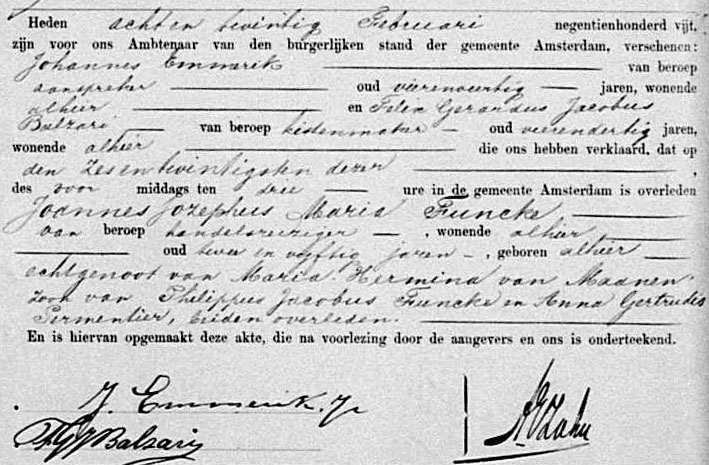 Heden acht en twintig Februari negentienhonderd vijf,
zijn voor ons Ambtenaar van den burgerlijken stand der gemeente Amsterdam, verschenen:
Johannes Emmerik van beroep
aanspreker oud vierenveertig jaren, wonende
alhier en Felix Gerardus Jacobus
Balzari van beroep kistenmaker oud vierendertig jaren,
wonende alhier die ons hebben verklaard, dat op
den zesentwintigsten dezer,
des voor middags ten drie ure in de gemeente Amsterdam is overleden
Joannes Jozephus Maria Funcke
van beroep handelsreiziger, wonende alhier
oud twee en vijftig jaren, geboren alhier
echtgenoot van Maria Hermina van Maanen.
zoon van Philippus Jacobus Funcke en Anna Gertrudis
Permentier, beiden overleden.
En is hiervan opgemaakt deze akte, die na voorlezing door de aangevers en ons is onderteekend.
J. Emmerik. Jr
F G J Balzari